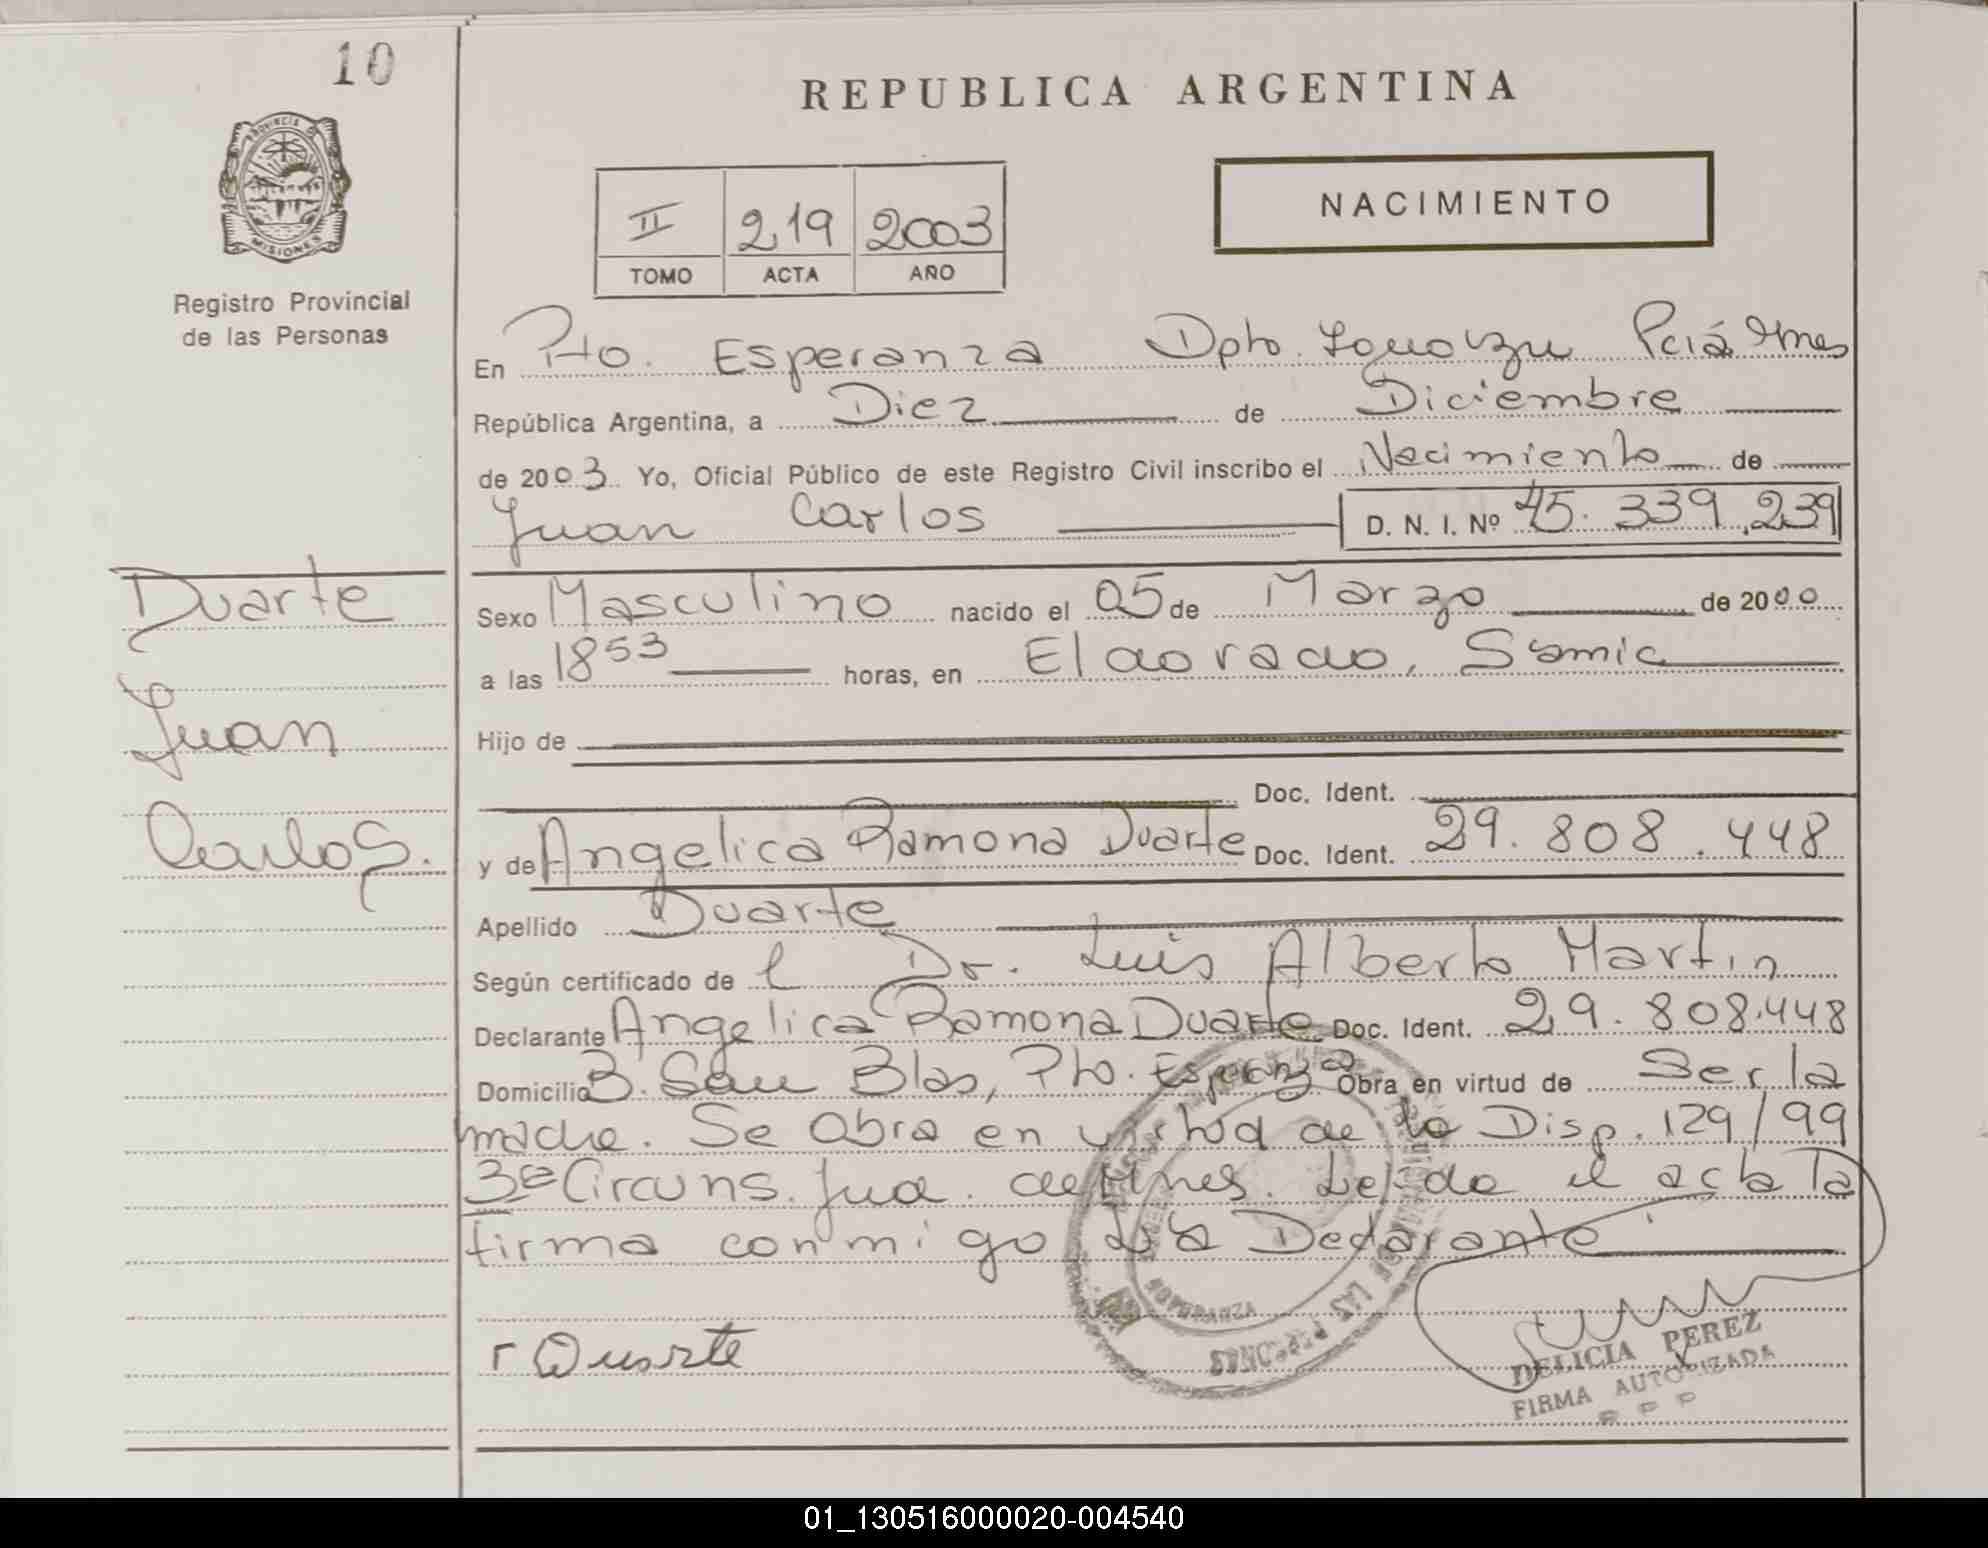 10
REPUBLICA ARGENTINA
PROVINCIA D
MISIONES
Registro Provincial
de las Personas
II 219 2003
TOMO ACTA AÑO
NACIMIENTO
En Pto. Esperanza Dpto. Iguazu Pciá Mnes
República Argentina, a Diez de Diciembre
de 2003 Yo, Oficial Público de este Registro Civil inscribo el Nacimiento de
Juan Carlos D. N. I. Nº 45.339.239
Duarte
Juan
Carlos.
Sexo Masculino nacido el 05 de Marzo de 2000
a las 1853 horas, en Eldorado, Samic
Hijo de
Doc. Ident.
y de Angelica Ramona Duarte Doc. Ident. 29.808.448
Apellido Duarte
Según certificado de l Dr. Luis Alberto Martin
Declarante Angelica Ramona Duarte Doc. Ident. 29.808.448
Domicilio B. San Blas, Pto. Esperanza Obra en virtud de Ser la
madre. Se Obra en virtud de la Disp. 129/99
3ª Circuns. Jud. de Mnes. Leida el acta la
firma conmigo La Declarante
r Duarte
DE LAS PERSONAS
DELICIA PEREZ
FIRMA AUTORIZADA
01_130516000020-004540